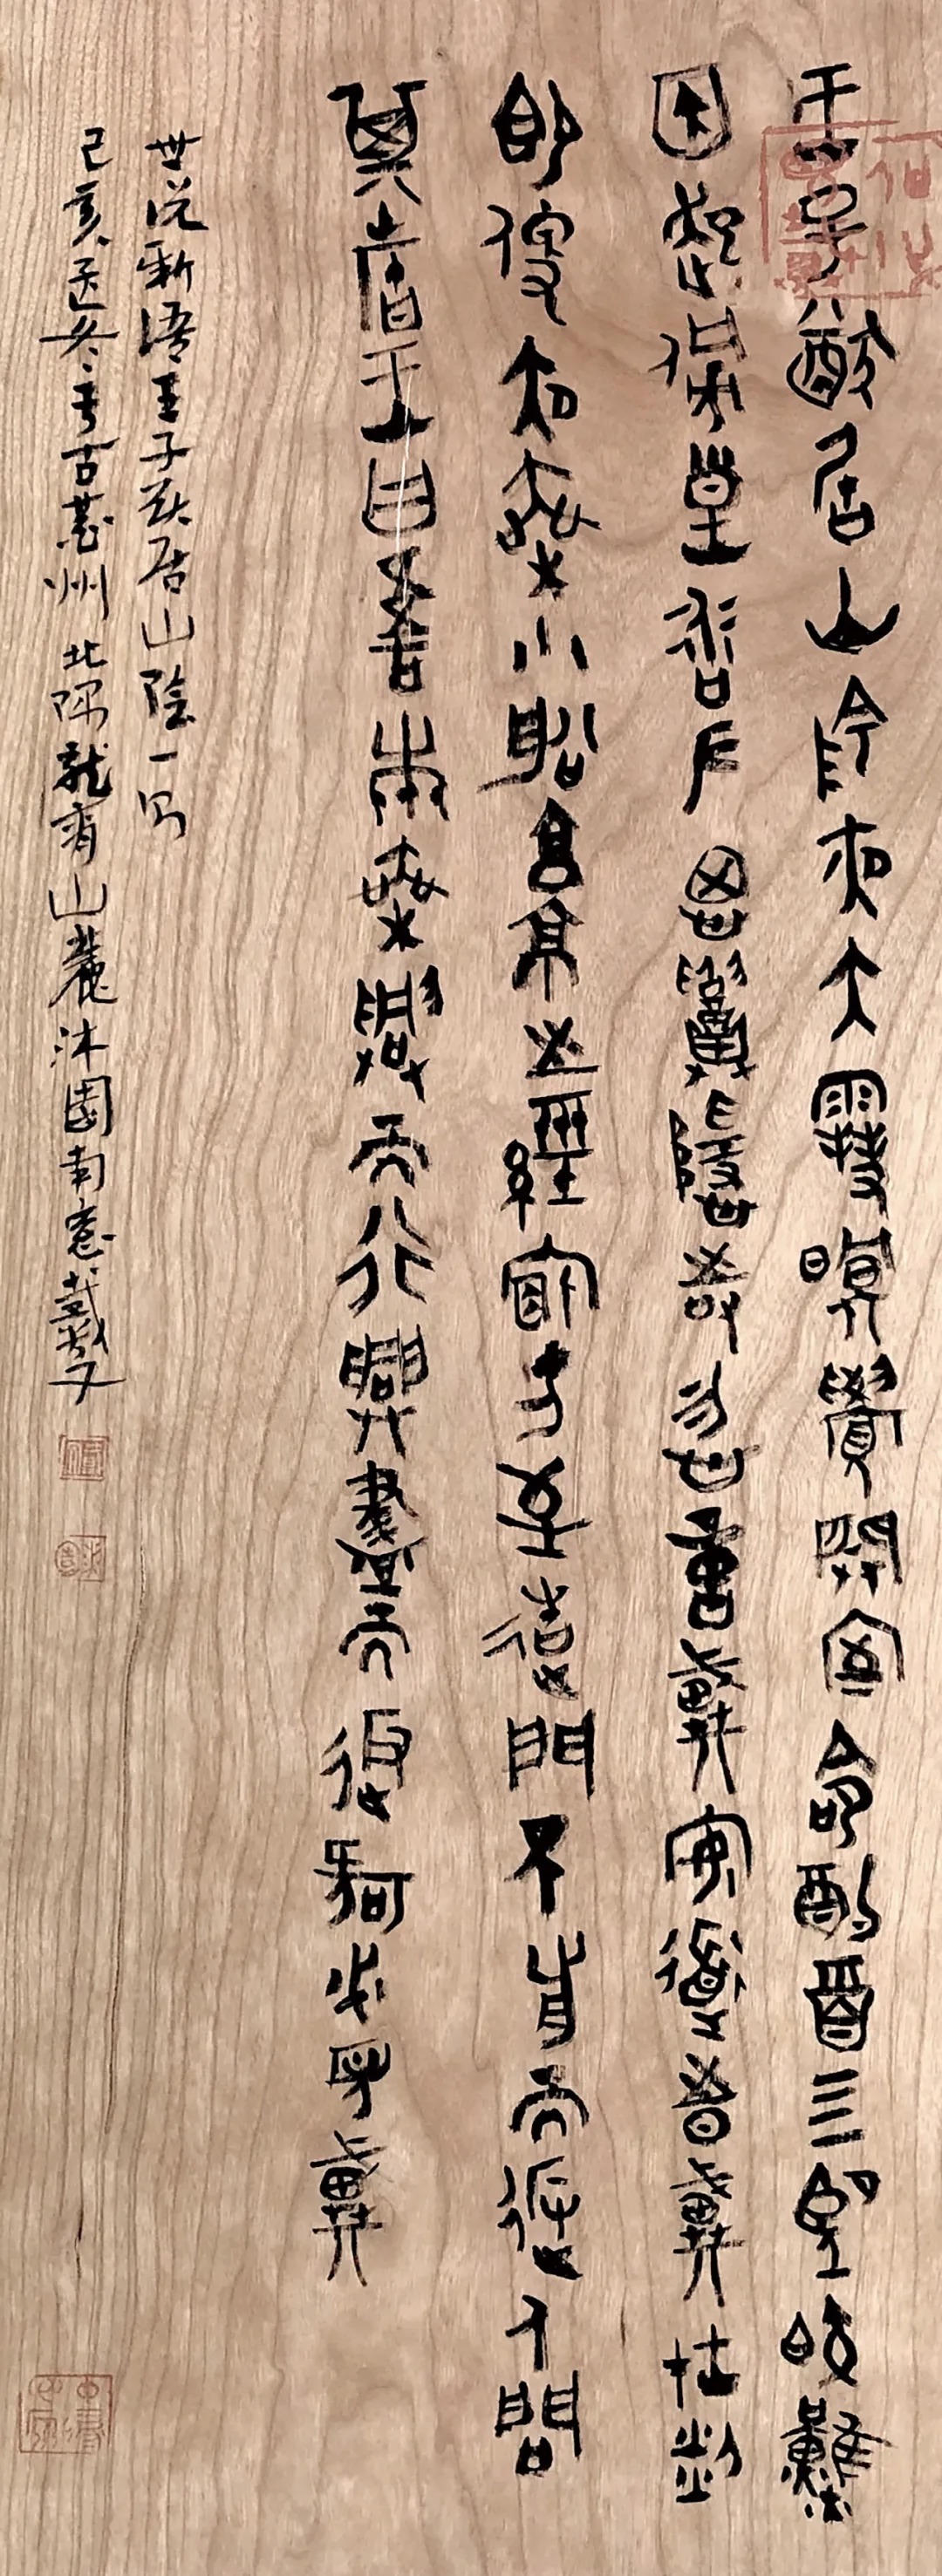 王子猷居山陰夜大雪眠覺開室命酌酒四望皎然
因起彷徨詠左思招隱詩忽憶戴安道時戴在剡
即便夜乘小船就之經宿方至造門不前而返人問
其故王曰吾本乘興而行興盡而返何必見戴
世說新語王子猷居山陰一則
己亥孟冬於古州北隅龍山麓沐園南窗